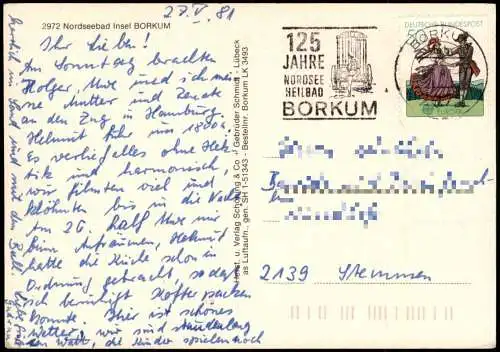 27.V.81
2972 Nordseebad Insel BORKUM
Ihr Lieben!
Am Sonntag brachten
Holger, Uwe und ich mei-
ne Mutter und Renate
an den Zug in Hamburg.
Helmut fuhr um 1800.
Es verlief alles ohne Hek-
tik und harmonisch,
wir führten viel und
klöhnten bis in die Nacht
Am 26. half Uwe mir
beim Aufräumen, Helmut
hatte die Küche schon in
Ordnung gebracht, so daß
ich beruhigt Koffer packen
konnte. Hier ist schönes
Wetter, wir sind stundenlang
den Watt, die Kinder spielen noch
herrlich im Sand und mit dem Ball.
Herst. u. Verlag Schöning & Co. + Gebrüder Schmidt, Lübeck
as Luftaufn., gen. SH 1-51343 - Bestellnr. Borkum LK 3493
125
JAHRE
NORDSEE
HEILBAD
BORKUM
BORKUM
DEUTSCHE BUNDESPOST
EUROPA
2139 Stemmen